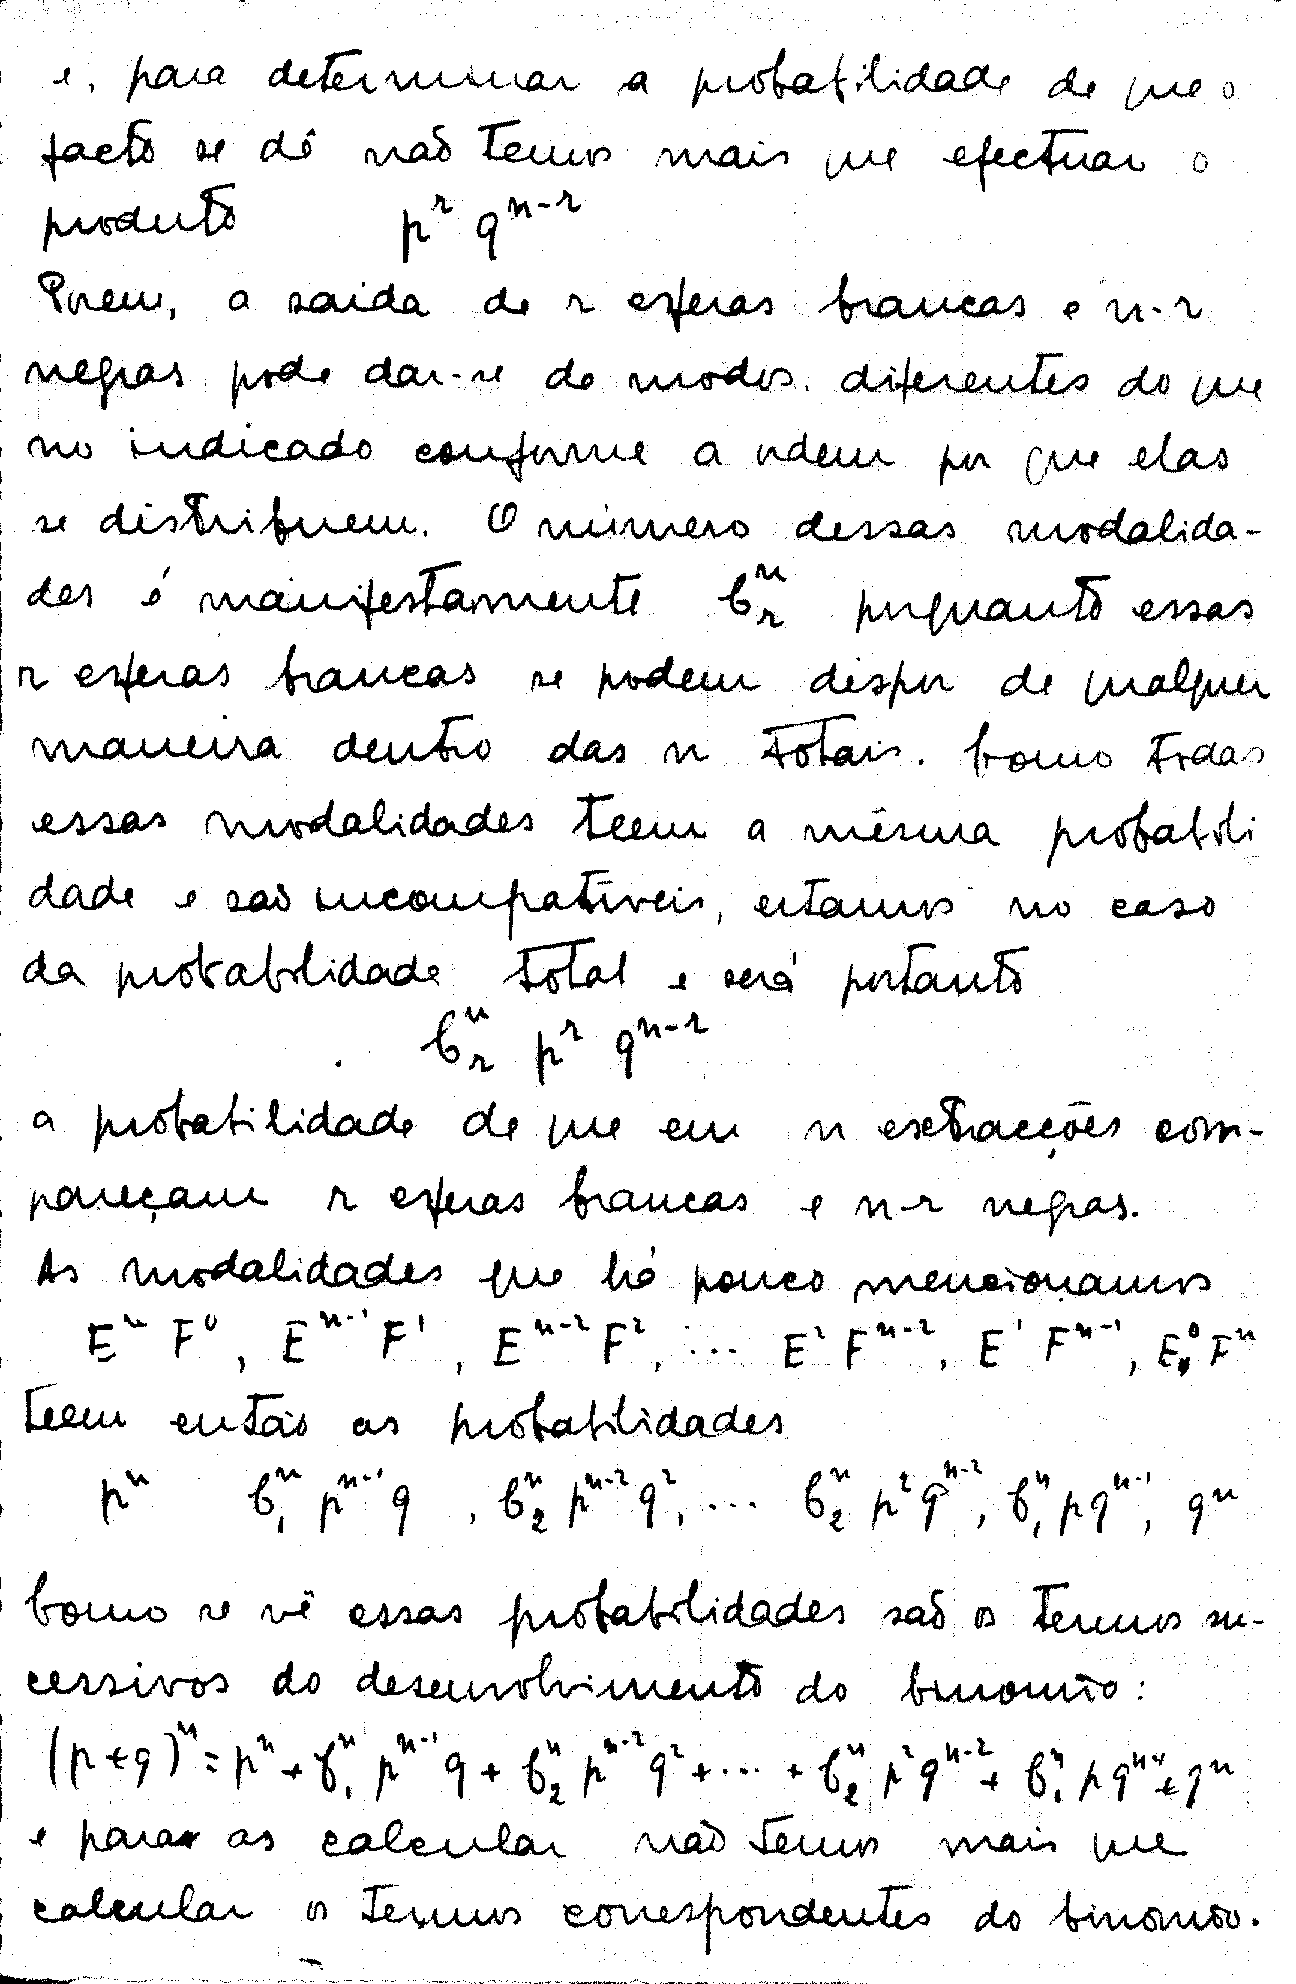 e, para determinar a probabilidade de que o
facto se dê não temos mais que efectuar o
produto p^r q^{n-r}
Porem, a saida de r esferas brancas e n-r
negras pode dar-se de modos diferentes do que
no indicado conforme a ordem por que elas
se distribuem. O número dessas modalida-
des é manifestamente C_r^n porquanto essas
r esferas brancas se podem dispor de qualquer
maneira dentro das n totais. Como todas
essas modalidades teem a mesma probabili
dade e são incompatíveis, estamos no caso
da probabilidade total e será portanto
C_r^n p^r q^{n-r}
a probabilidade de que em n extracções com-
pareçam r esferas brancas e n-r negras.
As modalidades que há pouco mencionamos
E^n F^0, E^{n-1} F^1, E^{n-2} F^2, ... E^2 F^{n-2}, E^1 F^{n-1}, E^0 F^n
teem então as probabilidades
p^n C_1^n p^{n-1} q, C_2^n p^{n-2} q^2, ... C_2^n p^2 q^{n-2}, C_1^n p q^{n-1}, q^n
Como se vê essas probabilidades são os termos su-
cessivos do desenvolvimento do binomio:
(p+q)^n = p^n + C_1^n p^{n-1} q + C_2^n p^{n-2} q^2 + ... + C_2^n p^2 q^{n-2} + C_1^n p q^{n-1} + q^n
e para as calcular não temos mais que
calcular os termos correspondentes do binomio.